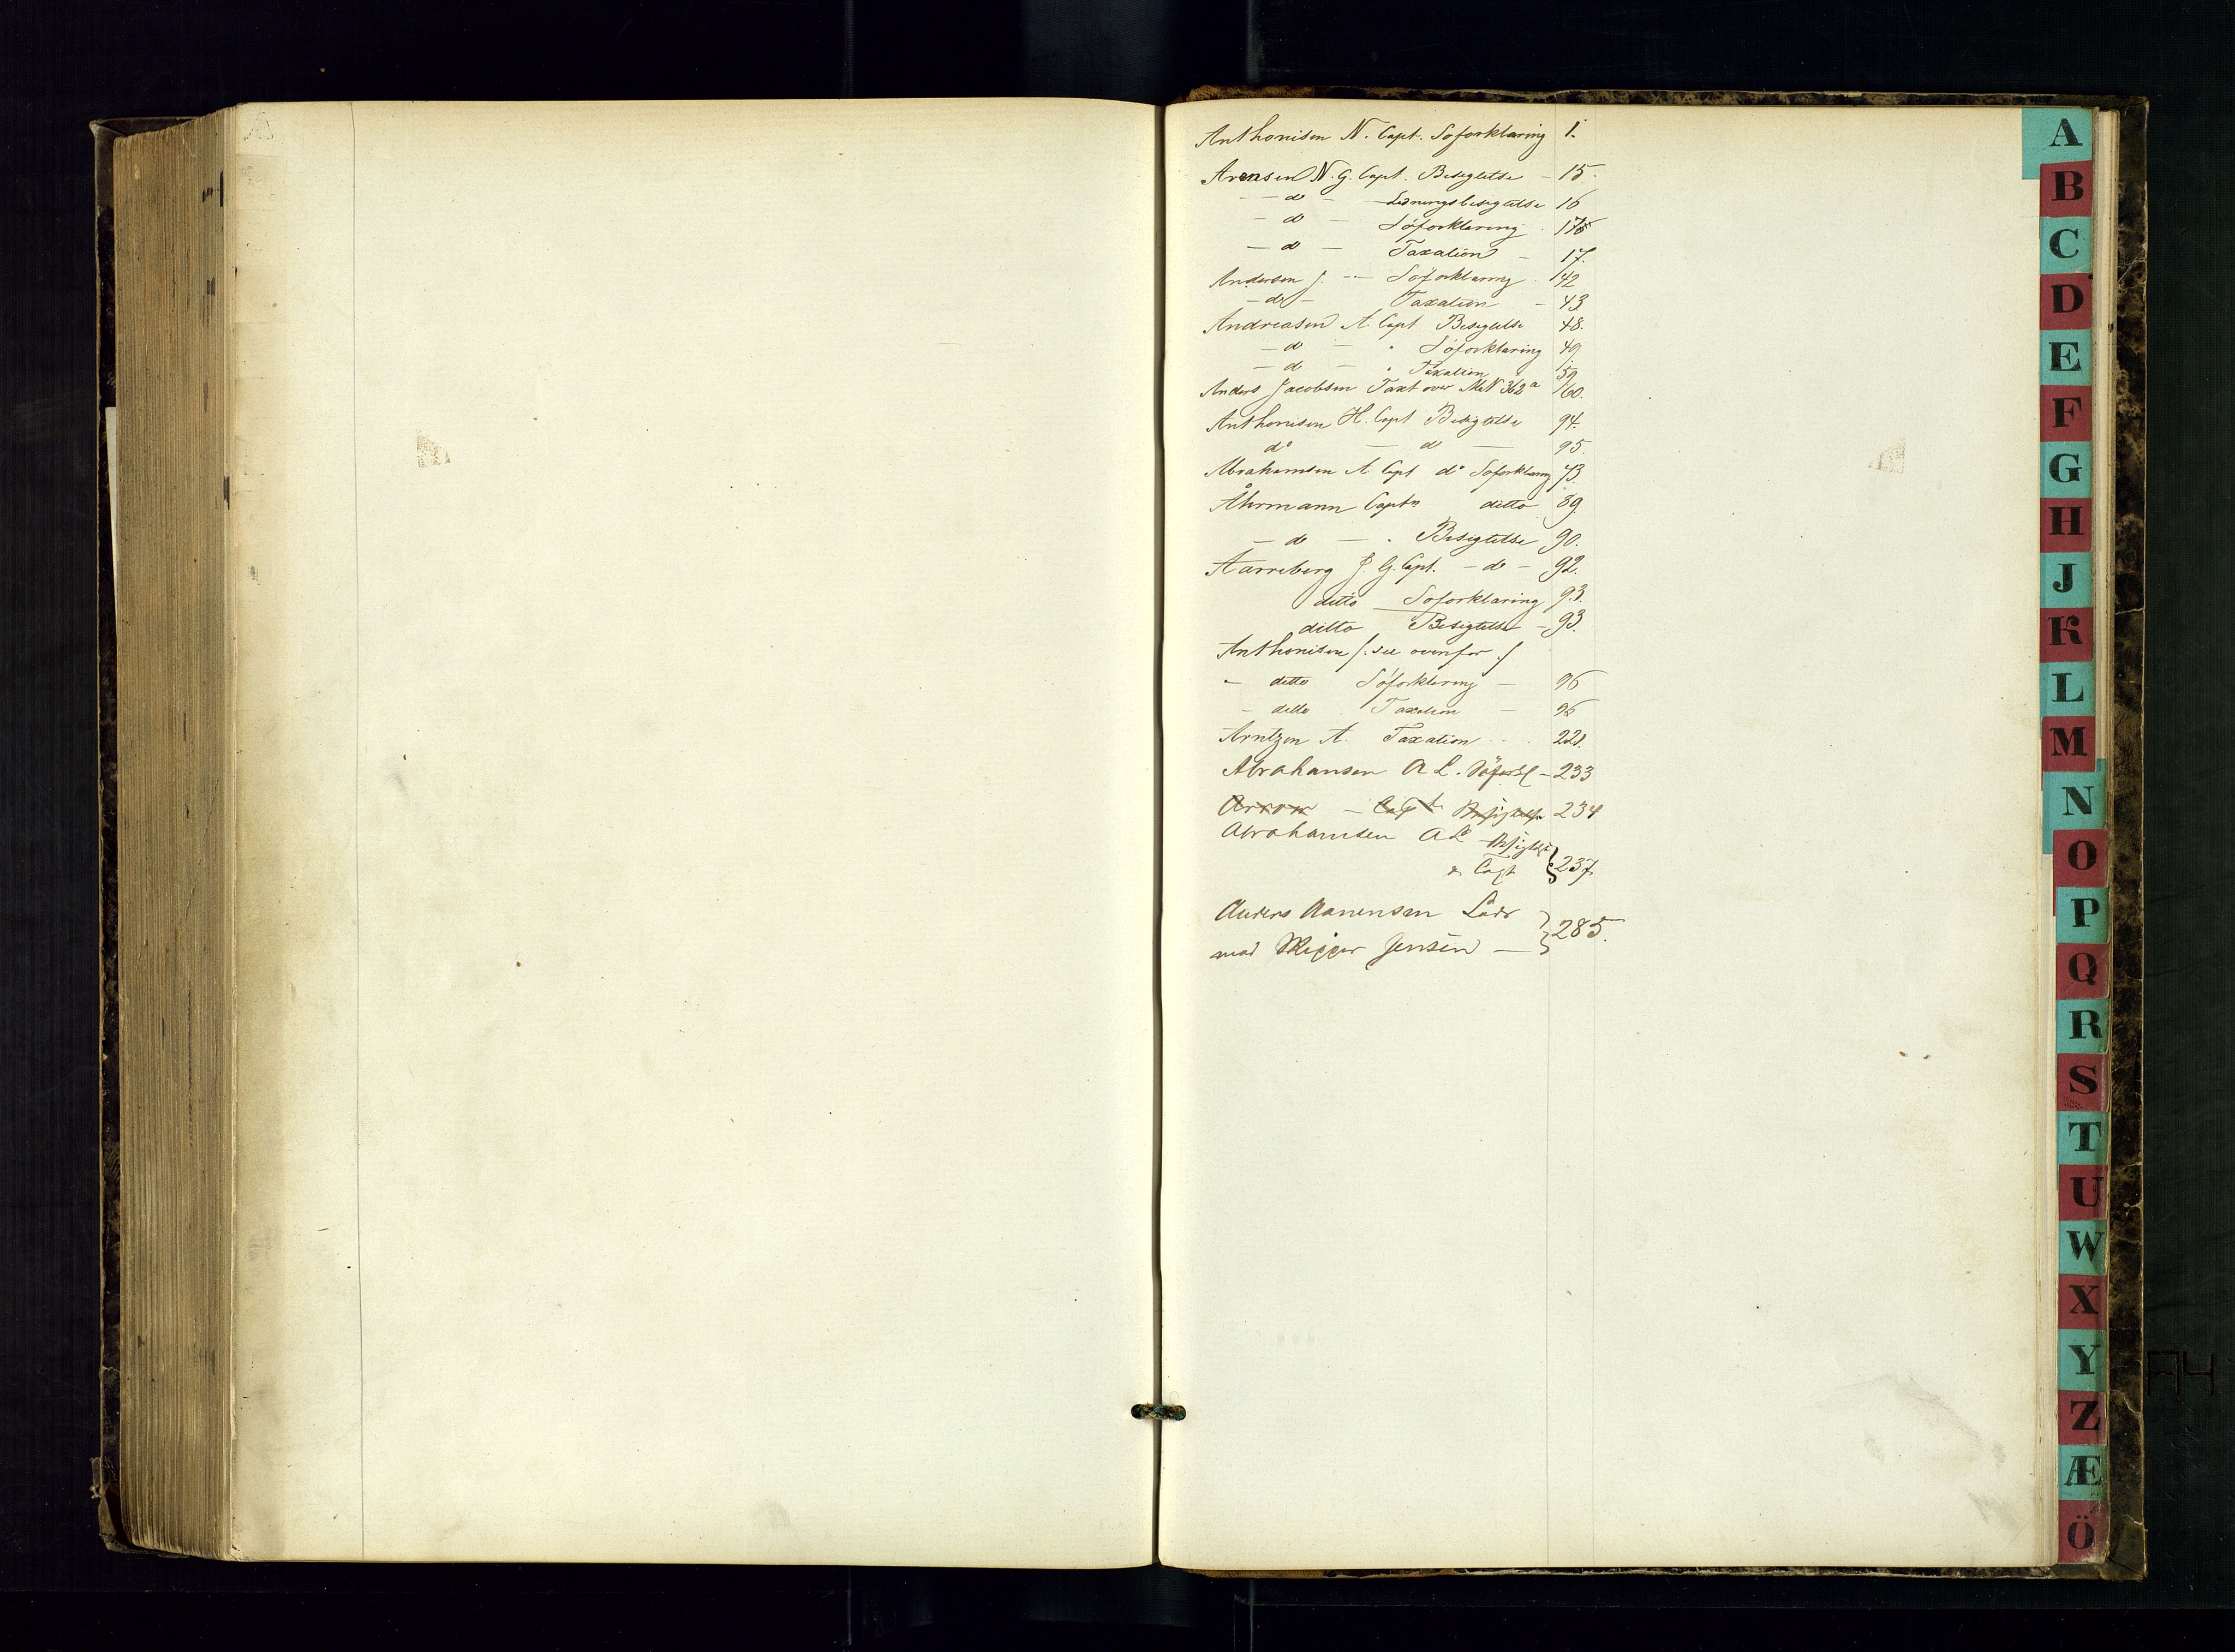 Anthonisen N. Capt. Søforklaring 1.
Arensen N. G. Capt. Besigtelse - 15.
- do - Ledningsbesigtelse 16
- do - Söforklaring . 175
- do - Taxation - 17.
Andersen J. - Söforklaring . 42
- do - Taxation - 43
Andreasen A. Capt Besigtelse 48.
- do - " Söforklaring 49
- do - " Taxation 59
Anders Jacobsen Taxt over MN 362 a 60.
Anthonisen H. Capt Besigtelse 94.
do - do - 95.
Abrahamsen A. Capt do Søforklaring 73.
Åhrmann Captn ditto 89.
- do - " Besigtelse 90.
Aarreberg J. G. Capt. - do - 92.
ditto Søforklaring 93.
ditto Besigtelse - 93.
Anthonisen /: see ovenfor :/
- ditto Söforklaring - 96
- ditto Taxation - 96
Arntzen A. Taxation . . 221.
Abrahamsen A L. Söforkl - 233
Arrow - Capt Besigtelse 234
Abrahamsen A L Besigtelse
& Taxt } 237
Anders Aanensen Lods
mod Skipper Jensen - } 285.
A
B
C
D
E
F
G
H
J
K
L
M
N
O
P
Q
R
S
T
U
W
X
Y
Z
Æ
Ö